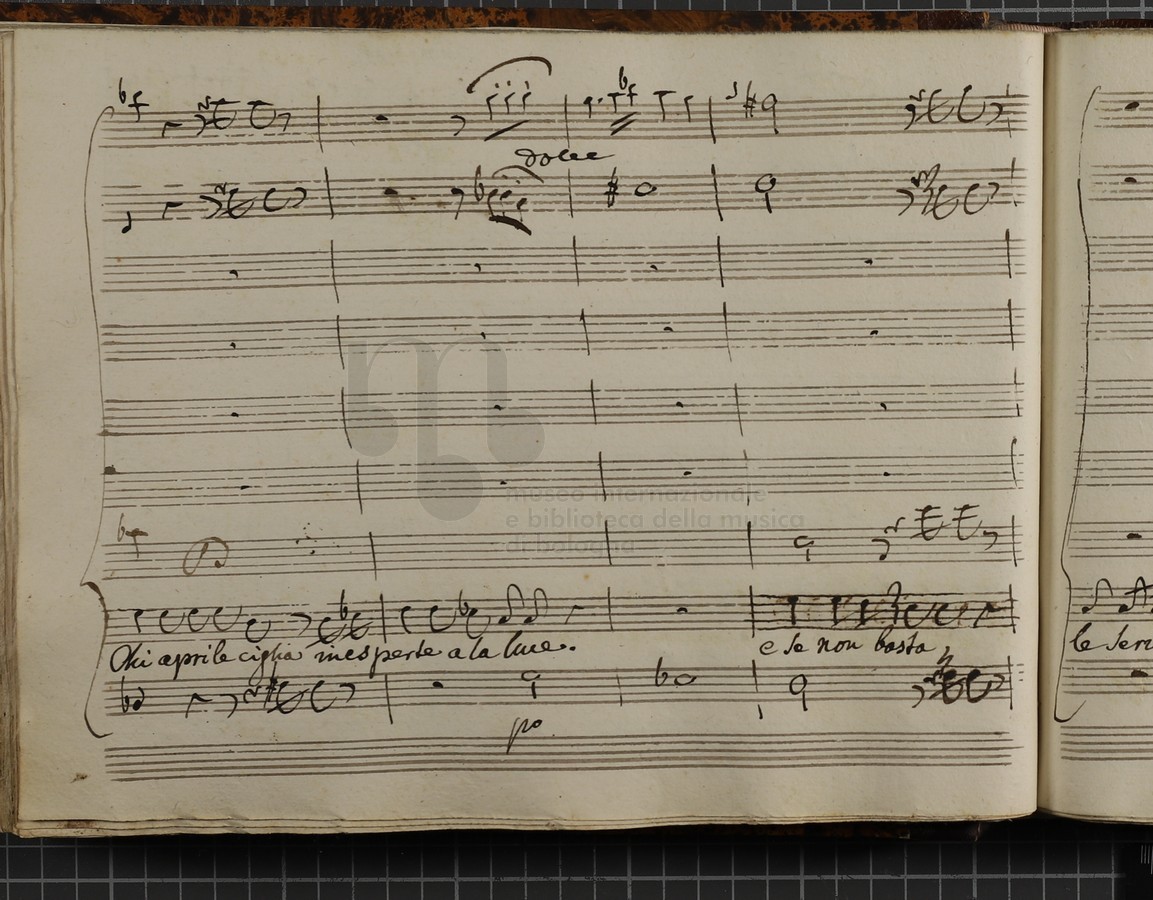 dolce
museo internazionale
e biblioteca della musica
di bologna
Chi aprile ciglia inesperte a la luce. e se non basta
le
po